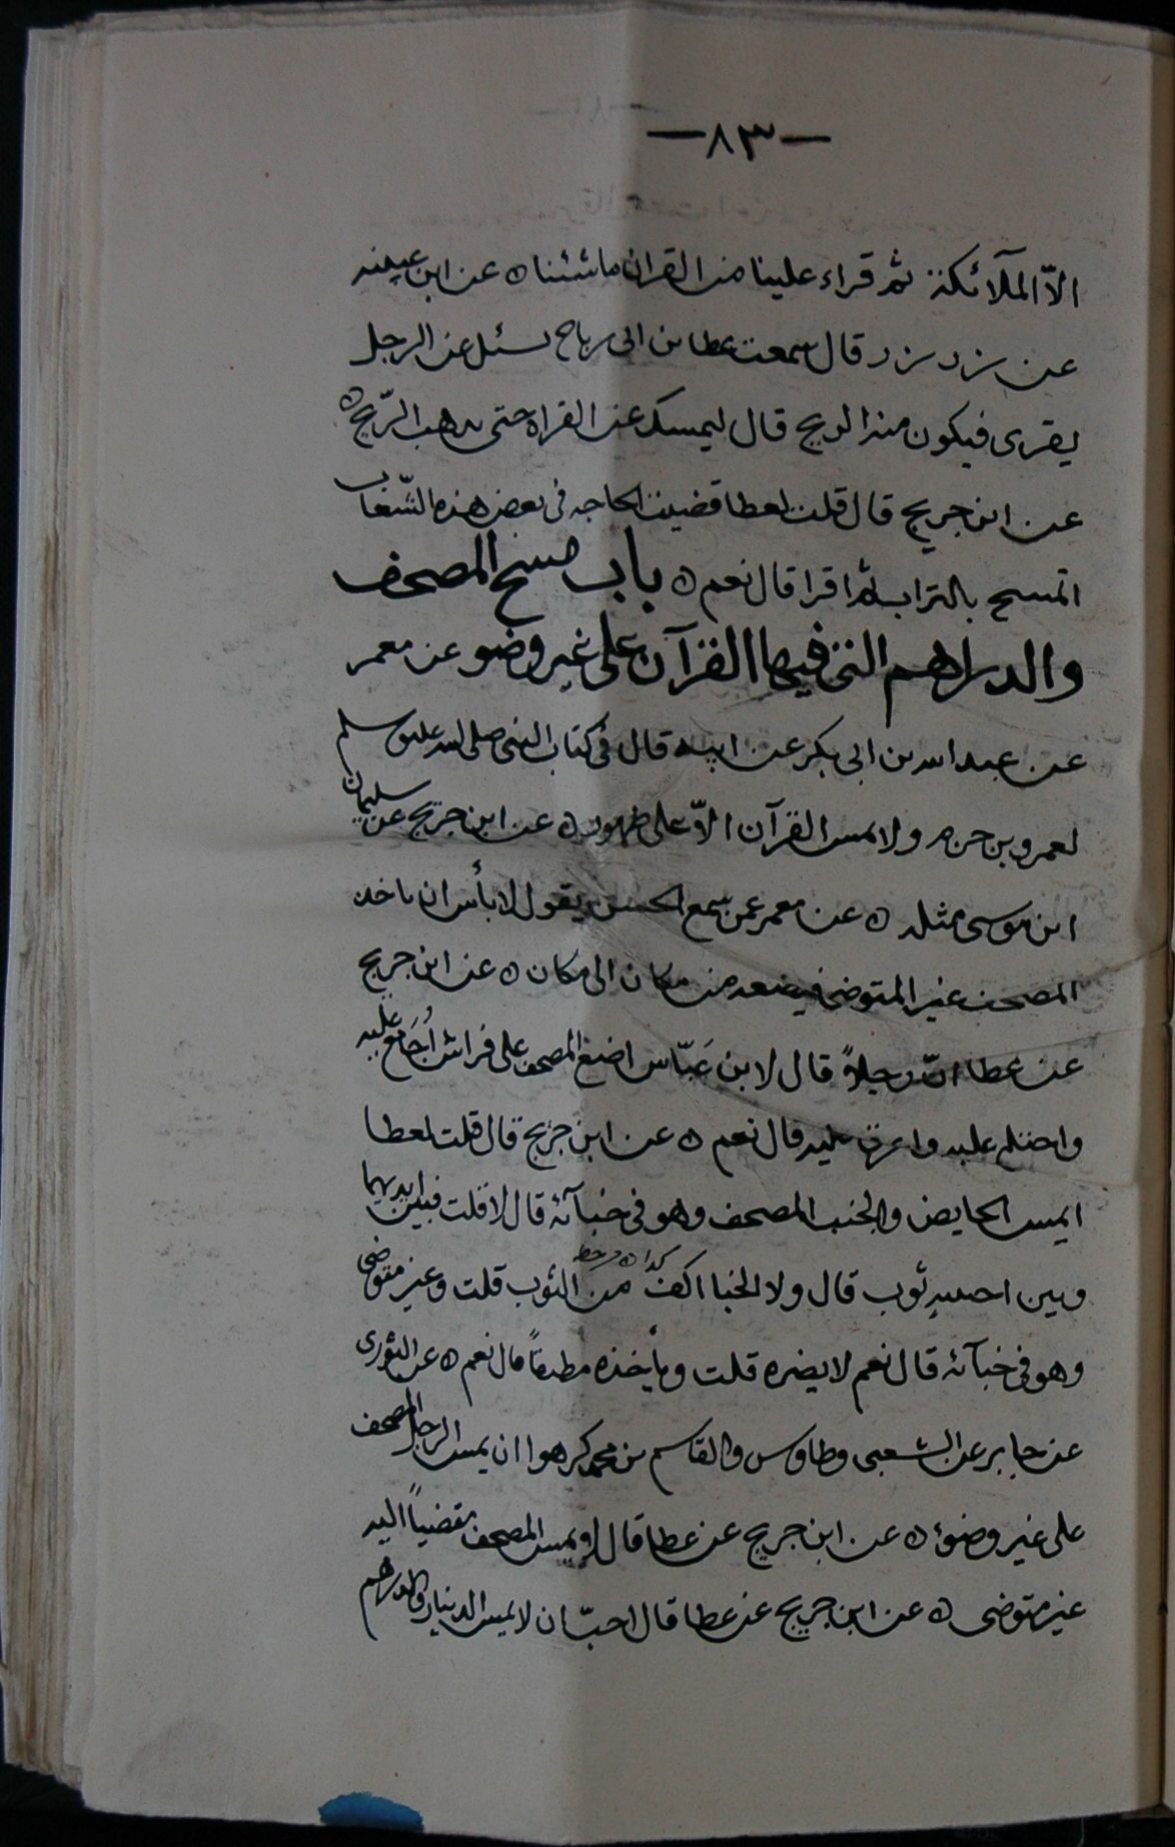 —٨٣—
الاّ الملآئكة ثم قراء علينا من القران ما شئنا ٥ عن ابن عيينه
عن زرزر قال سمعت عطا بن ابى رباح يسئل عن الرجل
يقرى فيكون منه الريح قال ليمسك عن القراة حتى يذهب الرّيح ٥
عن ابن جريج قال قلت لعطا قضيت الحاجه فى بعض هذه الشّعاب
اتمسح بالتراب ثم اقرا قال نعم ٥ باب مسح المصحف
والدراهم التى فيها القرآن على غير وضو عن معمر
عن عبد الله بن ابى بكر عن ابيه قال فى كتاب النبى صلى الله عليه وسلم
لعمرو بن حزم ولا يمس القرآن الاّ على طهور ٥ عن ابن جريج عن سليمان
ابن موسى مثله ٥ عن معمر عمن سمع الحسن يقول لا بأس ان ياخذ
المصحف غير المتوضى فيضعه من مكان الى مكان ٥ عن ابن جريج
عن عطا انّ رجلاً قال لابن عَبّاس اضع المصحف على فراش أُجَامع عليه
واحتلم عليه واعرق عليه قال نعم ٥ عن ابن جريج قال قلت لعطا
ايمس الحايض والجنب المصحف وهو فى خبآئه قال لا قلت فبين ايديهما
وبين اخبيه ثوب قال ولا الخبا اكف من الثوب قلت وغير متوضى
وهو فى خبآئه قال نعم لا يضره قلت ويأخذه مطبقاً قال نعم ٥ عن الثورى
عن جابر عن الشعبى وطاوس والقاسم بن محمد كرهوا ان يمس الرجل المصحف
على غير وضوء ٥ عن ابن جريج عن عطا قال لا يمس المصحف مفضياً اليه
غير متوضى ٥ عن ابن جريج عن عطا قال احبّ ان لا يمس الدينار والدراهم